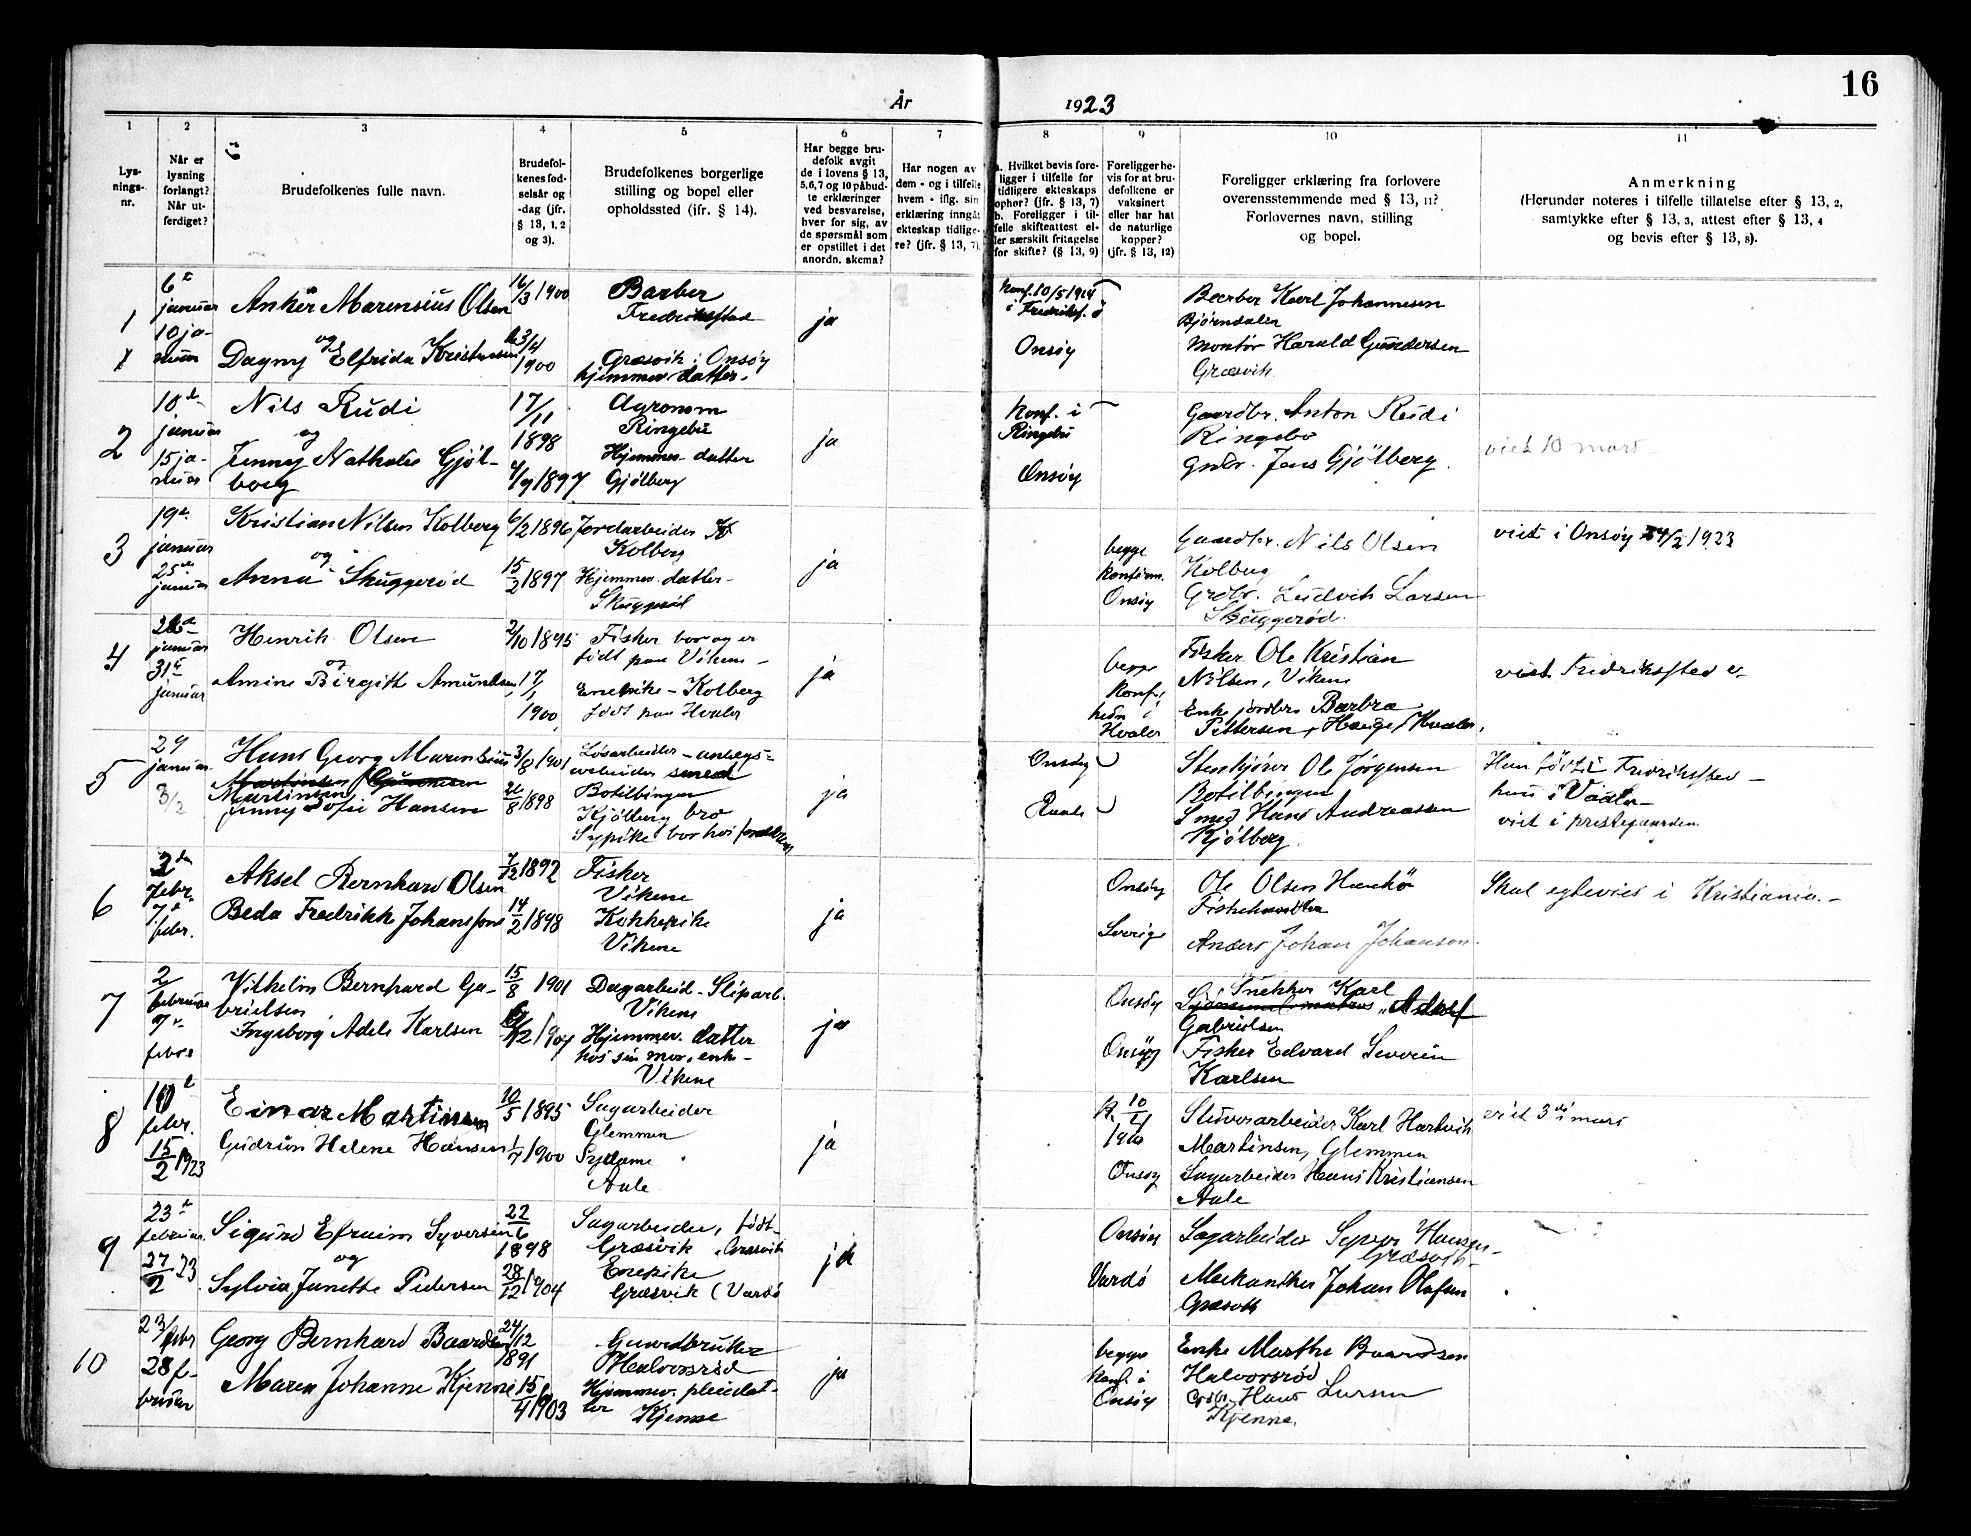 År
1923
16
1 2 3 4 5 6 7 8 9 10 11
Lys-
nings-
nr.
Når er
lysning
forlangt?
Når ut-
ferdiget?
Brudefolkenes fulle navn.
Brudefol-
kenes fød-
selsår og
-dag (jfr.
§ 13, 1, 2
og 3).
Brudefolkenes borgerlige
stilling og bopel eller
opholdssted (ifr. § 14).
Har begge bru-
defolk avgit
de i lovens § 13,
5, 6, 7 og 10 påbud-
te erklæringer
ved besvarelse,
hver for sig, av
de spørsmål som
er opstillet i det
anordn. skema?
Har nogen av
dem - og i tilfelle
hvem - iflg. sin
erklæring inngått
ekteskap tidlige-
re? (jfr. § 13, 7).
a. Hvilket bevis fore-
ligger i tilfelle for
tidligere ekteskaps
ophør? (jfr. § 13, 7)
b. Foreligger i til-
felle skifteattest el-
ler særskilt fritagelse
for skifte? (§ 13, 9)
Foreligger be-
vis for at bru-
defolkene er
vaksinert
eller har hat
de naturlige
kopper?
(jfr. § 13, 12)
Foreligger erklæring fra forlovere
overensstemmende med § 13, 11?
Forlovernes navn, stilling
og bopel.
Anmerkning
(Herunder noteres i tilfelle tillatelse efter § 13, 2,
samtykke efter § 13, 3, attest efter § 13, 4
og bevis efter § 13, 8).
1
6te
januar
10 ja-
nuar
Anker Marensius Olsen
og
Dagny Elfrida Kristensen
16/3 1900
23/4
1900
Barber
Fredrikstad
Græsvik i Onsöy
hjemmev. datter.
ja
Konf. 10/5 1914
i Fredrikst.
Onsöy
Barber Karl Johannesen
Bjørndalen
Montör Harald Gundersen
Græsvik
2
10de
januar
15 ja-
nuar
Nils Rudi
og
Jenny Nathalie Gjöl-
berg
17/11
1898
4/9 1897
Agronom
Ringebu
Hjemmev. datter
Gjölberg
ja
Konf. i
Ringebu
Onsöy
Gaardbr. Anton Rudi
Ringebu
Grdbr. Jens Gjölberg.
viet 10 mars
3
19de
januar
25de
januar
Kristian Nilsen Kolberg
og
Anna Skuggeröd
6/2 1896
15/2 1897
Jordarbeider
Kolberg
Hjemmev. datter
Skuggeröd
ja
begge
konfirm.
Onsöy
Gaardbr. Nils Olsen
Kolberg
Grdbr. Ludvik Larsen
Skuggeröd.
viet i Onsöy 24/2 1923
4
januar
31te
januar
Henrik Olsen
og
Amine Birgith Amundsen
2/10 1895
17/1
1900
Fisker bor og er
født paa Vikene
Enepike - Kolberg
født paa Hvaler
ja
begge
konf.
Hvaler
Fisker Ole Kristian
Nilsen, Vikene
Enke Barbra
Pettersen, Hauge, Hvaler.
viet Fredrikstad
5
29
januar
3/2
Hans Georg Marensius
Martinsen
Jenny Sofie Hansen
3/8 1901
26/8 1898
Løsarbeider - anlegs-
arbeider
Botilbingen
Kjölberg bro
Sypike bor hos foreldrene
ja
Onsöy
Raade
Stenkjører Ole Jörgensen
Botilbingen
Smed Hans Andreassen
Kjölberg.
Han född i Fredrikstad -
hun i Vaaler
viet i prestegaarden
6
2den
febr.
7de
febr.
Aksel Bernhard Olsen
Beda Fredrikke Johansson
7/12 1892
14/2 1898
Fisker
Vikene
Kokkepike
Vikene
ja
Onsöy
Sverige
Ole Olsen Hankö
Fiskehandler
Anders Johan Johanson.
Skal egtevies i Kristiania.
7
2/
februar
7de
febr
Vilhelm Bernhard Ga-
brielsen
Ingeborg Adele Karlsen
15/8 1901
Dagarbeid. Sliparb.
Vikene
Hjemmev. datter
hos sin mor, enke
Vikene
ja
Onsöy
Onsöy
Snekker Karl
Adolf
Gabrielsen
Fisker Edvard Severin
Karlsen
8
10de
febr.
15/2 1923
Einar Martinsen
Gudrun Helene Hansen
10/5 1895
1/7 1900
Sagarbeider
Glemmen
Sydame
Aale
ja
Onsöy
Stuverarbeider Karl Hartvik
Martinsen, Glemmen
Sagarbeider Hans Kristiansen
Aale
viet 3de mars
9
23de
februar
27/2 23
Sigurd Efraim Syversen
og
Sylvia Janette Pedersen
22/6
1898
28/12 1904
Sagarbeider, født
Græsvik, Græsvik
Enepike
Græsvik (Vardö
ja
Onsöy
Vardö
Sagarbeider Syver Hansen
Græsvik
Mekaniker Johan Olafsen
Græsvik
10
23/ febr
28 fe-
bruar
Georg Bernhard Baardsen
Maren Johanne Kjenne
24/12
1891
15/4 1903
Gaardbruker
Halvorsröd
Hjemmev. pleiedat-
ter
Kjenne
ja
begge
konf. i
Onsöy
Enke Marthe Baardsen
Halvorsröd
Grdbr. Hans Larsen
Kjenne.